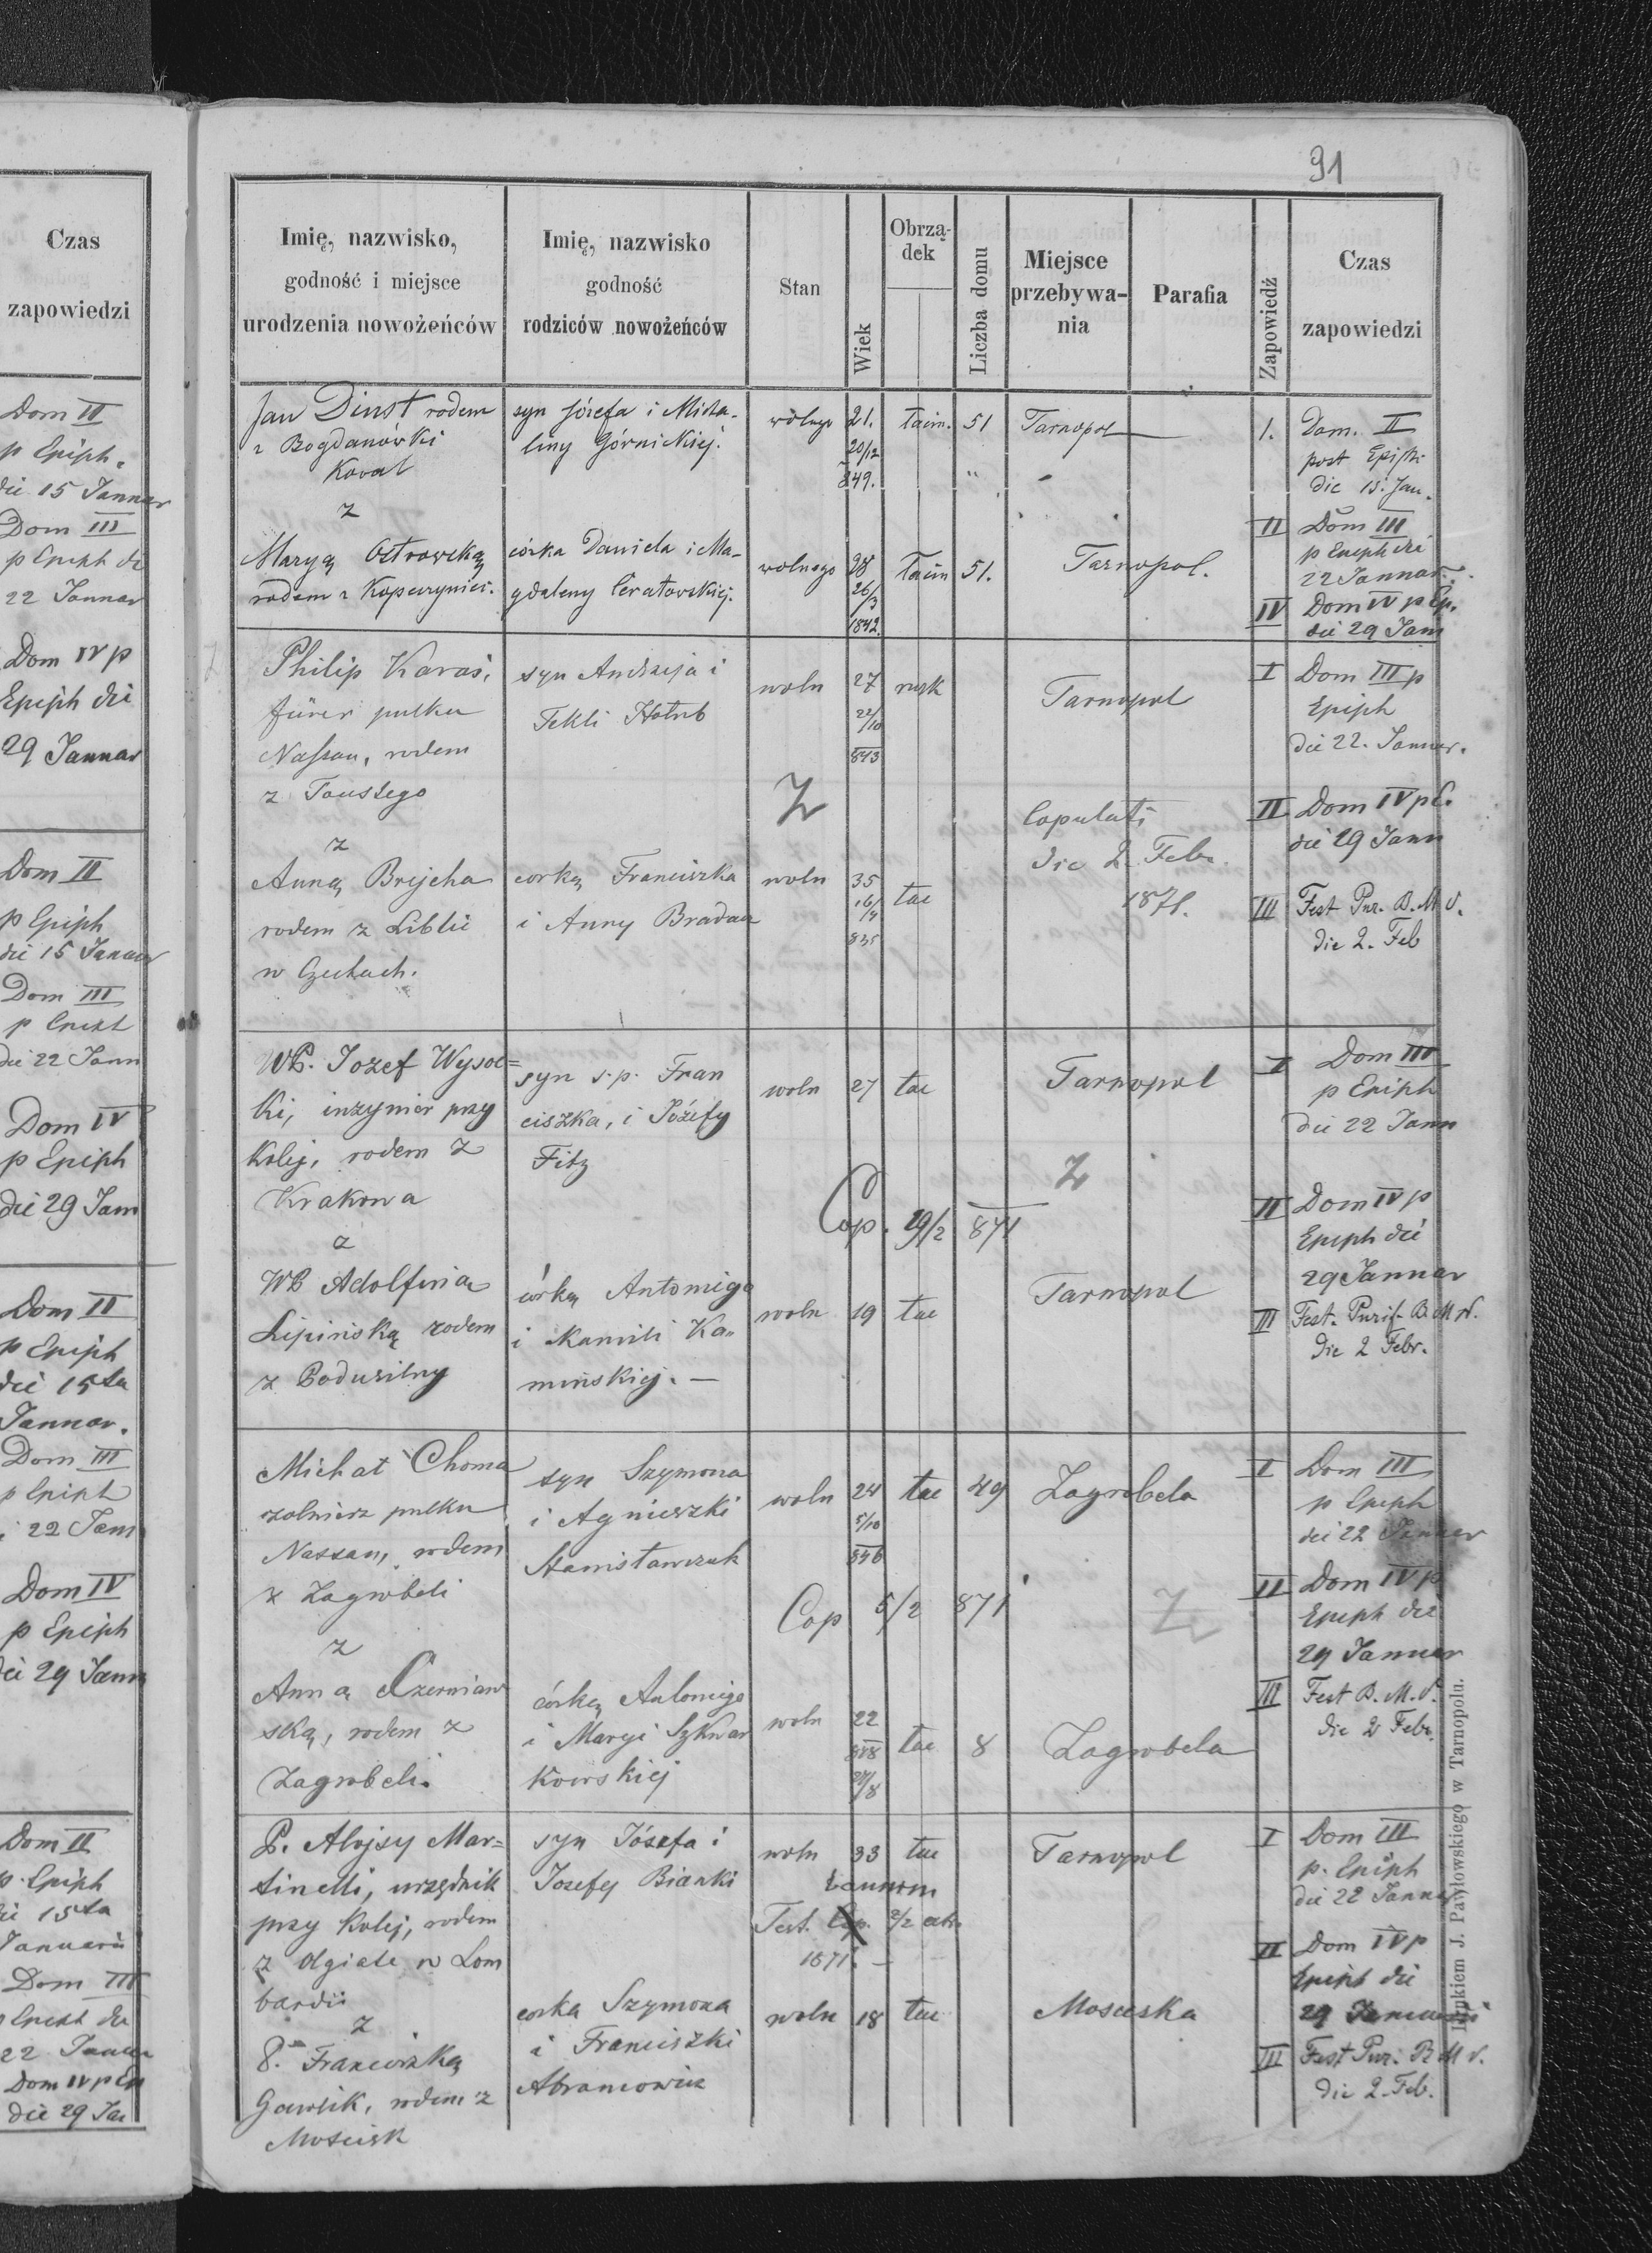 91
Czas
zapowiedzi
Dom II
p Epiph.
die 15 Januar
Dom III
p Epiph di
22 Januar
Dom IV p
Epiph die
29 Januar
Dom II
p Epiph
die 15 Januar
Dom III
p Epiph
die 22 Jann
Dom IV
p Epiph
die 29 Jann
Dom II
p Epiph
die 15ta
Januar.
Dom III
p Epiph
22 Jann
Dom IV
p Epiph
die 29 Jann
Dom II
p. Epiph
die 15ta
Januarii
Dom III
p Epiph die
22 Januar
Dom IV p Ep
die 29 Jan
Imię, nazwisko,
godność i miejsce
urodzenia nowożeńców
Imię, nazwisko
godność
rodziców nowożeńców
Stan
Wiek
Obrzą-
dek
Liczba domu
Miejsce
przebywa-
nia
Parafia
Zapowiedź
Czas
zapowiedzi
Jan Dinst rodem
z Bogdanówki
Koval
z
Maryą Ostrowską
rodem z Kopeczyniec.
syn Józefa i Micha-
liny Górnickiej.
córka Daniela i Ma-
gdaleny Ceratowskiej.
wolnego 21. łacin. 51 Tarnopol
20/12
849.
wolnego 28 łacin 51. Tarnopol.
26/3
1842.
1. Dom. II
post Epiph
die 15. Jan.
II Dom III
p Epiph die
22 Januar.
IV Dom IV p Ep.
die 29 Jann
Philip Karaś,
fürer pulku
Nassau, rodem
z Toustego
z
Anną Brejcha
rodem z Liblic
w Czechach.
syn Andrzeja i
Tekli Hołub
corką Franciszka
i Anny Bradacz
woln 27 rusk Tarnopol
22/10
843
Z
Copulati
die 2. Febr.
1871.
woln 35 łac
16/4
835
I Dom III p
Epiph
die 22. Januar.
II Dom IV p E.
die 29 Jann
III Fest Pur. B. M V.
die 2. Feb
WP. Jozef Wysoc=
ki, inzynier przy
Kolej, rodem z
Krakowa
z
WP Adolfina
Lipińską rodem
z Podusilny
syn s.p. Fran
ciszka, i Józefy
Fitz
córką Antoniego
i Kamili Ka=
mińskiej. —
woln 27 łac Tarnopol
Z
Cop. 19/2 871
woln 19 łac Tarnopol
I Dom III
p Epiph
die 22 Jann
II Dom IV p
Epiph die
29 Januar
III Fest. Purif. B. M V.
die 2 Febr.
Michał Choma
zolnierz pulku
Nassau, rodem
z Zagrobeli
z
Anną Czerniaw
ską, rodem z
Zagrobeli.
syn Szymona
i Agnieszki
Stanisławczuk
córką Antoniego
i Maryi Szkwar
kowskiej
woln 24 łac 49 Zagrobela
5/10
846
Cop 5/2 871
Z
woln 22 łac 8 Zagrobela
848
24/8
I Dom III
p Epiph
die 22 Januar
II Dom IV p
Epiph die
29 Januar
III Fest B. M. V.
die 2 Febr.
P. Alojsy Mar=
tinelli, urzędnik
przy Kolej, rodem
z Olgiate w Lom
bardii
z
P. Franciszką
Gawlik, rodem z
Mościsk
syn Józefa i
Jozefy Bianki
corka Szymona
i Franciszki
Abramowicz
woln 33 łac Tarnopol
Test. Cop. 2/2
1871. —
woln 18 łac Mosciska
I Dom III
p. Epiph
die 22 Januar
II Dom IV p
Epiph die
29 Januarii
III Fest Pur. B M V.
die 2. Feb.
Drukiem J. Pawłowskiego w Tarnopolu.